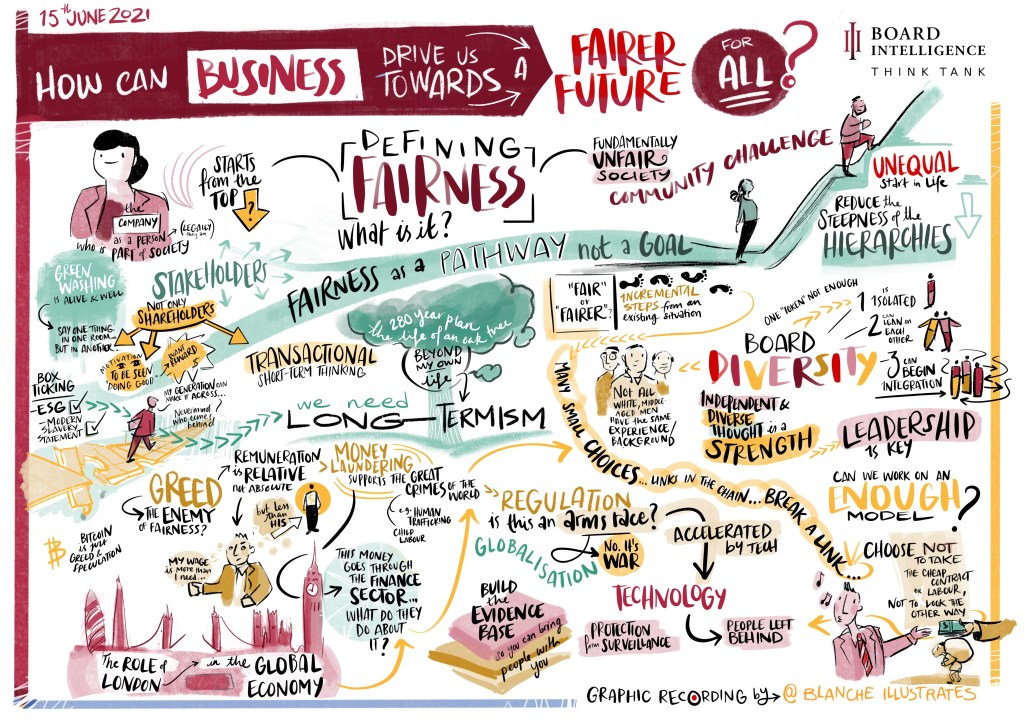 15th JUNE 2021
HOW CAN BUSINESS DRIVE US TOWARDS A FAIRER FUTURE FOR ALL?
BOARD
INTELLIGENCE
THINK TANK
STARTS
from the
TOP
?
the
COMPANY
as a PERSON
(LEGALLY
who is PART of SOCIETY
DEFINING
FAIRNESS
What is it?
FUNDAMENTALLY
UNFAIR
SOCIETY
COMMUNITY CHALLENGE
UNEQUAL
Start in Life
REDUCE the
STEEPNESS of the
HIERARCHIES
FAIRNESS as a PATHWAY not a GOAL
GREEN
WASHING
IS ALIVE & WELL
SAY ONE THING
IN ONE ROOM...
BUT IN ANOTHER...
STAKEHOLDERS
NOT ONLY
SHAREHOLDERS
MOTIVATION
IS
TO BE SEEN
'DOING GOOD'
WANT
REWARDS
MY GENERATION CAN
MAKE IT ACROSS...
Nevermind
who comes
behind
BOX
TICKING
-ESG
-MODERN
SLAVERY
STATEMENT
TRANSACTIONAL
SHORT-TERM THINKING
the 280 year plan
the life of an oak tree
BEYOND
MY OWN
life
we need
LONG-TERMISM
"FAIR"
or
"FAIRER"?
INCREMENTAL
STEPS from an
existing situation
NOT ALL
WHITE, MIDDLE-
AGED MEN
HAVE THE SAME
EXPERIENCE/
BACKGROUND
ONE "TOKEN" NOT ENOUGH
1 ISOLATED
2 CAN
LEAN on
EACH
OTHER
3 CAN
BEGIN
INTEGRATION
BOARD
DIVERSITY
INDEPENDENT &
DIVERSE
THOUGHT is a
STRENGTH
LEADERSHIP
is KEY
MANY SMALL CHOICES... LINKS IN THE CHAIN... BREAK A LINK...
GREED
THE ENEMY
of FAIRNESS?
BITCOIN
is just
GREED &
SPECULATION
REMUNERATION
is RELATIVE
not ABSOLUTE
but less
than
HIS
MY WAGE
is more than
I need...
MONEY
LAUNDERING
SUPPORTS the GREAT
CRIMES OF THE
WORLD
e.g. HUMAN
TRAFFICKING
CHILD
LABOUR
THIS MONEY
GOES THROUGH
THE FINANCE
SECTOR...
WHAT DO THEY
DO ABOUT
IT?
The ROLE of
LONDON
in the GLOBAL
ECONOMY
REGULATION
is this an arms race?
NO. It's
WAR
GLOBALISATION
ACCELERATED
by TECH
TECHNOLOGY
PROTECTION
from SURVEILLANCE
PEOPLE LEFT
BEHIND
BUILD
the
EVIDENCE
BASE
so you can bring
people with
you
CAN WE WORK ON AN
ENOUGH
MODEL?
CHOOSE NOT
TO TAKE
THE CHEAP
CONTRACT
or LABOUR,
NOT TO LOOK THE
OTHER WAY
GRAPHIC RECORDING by @ BLANCHE ILLUSTRATES